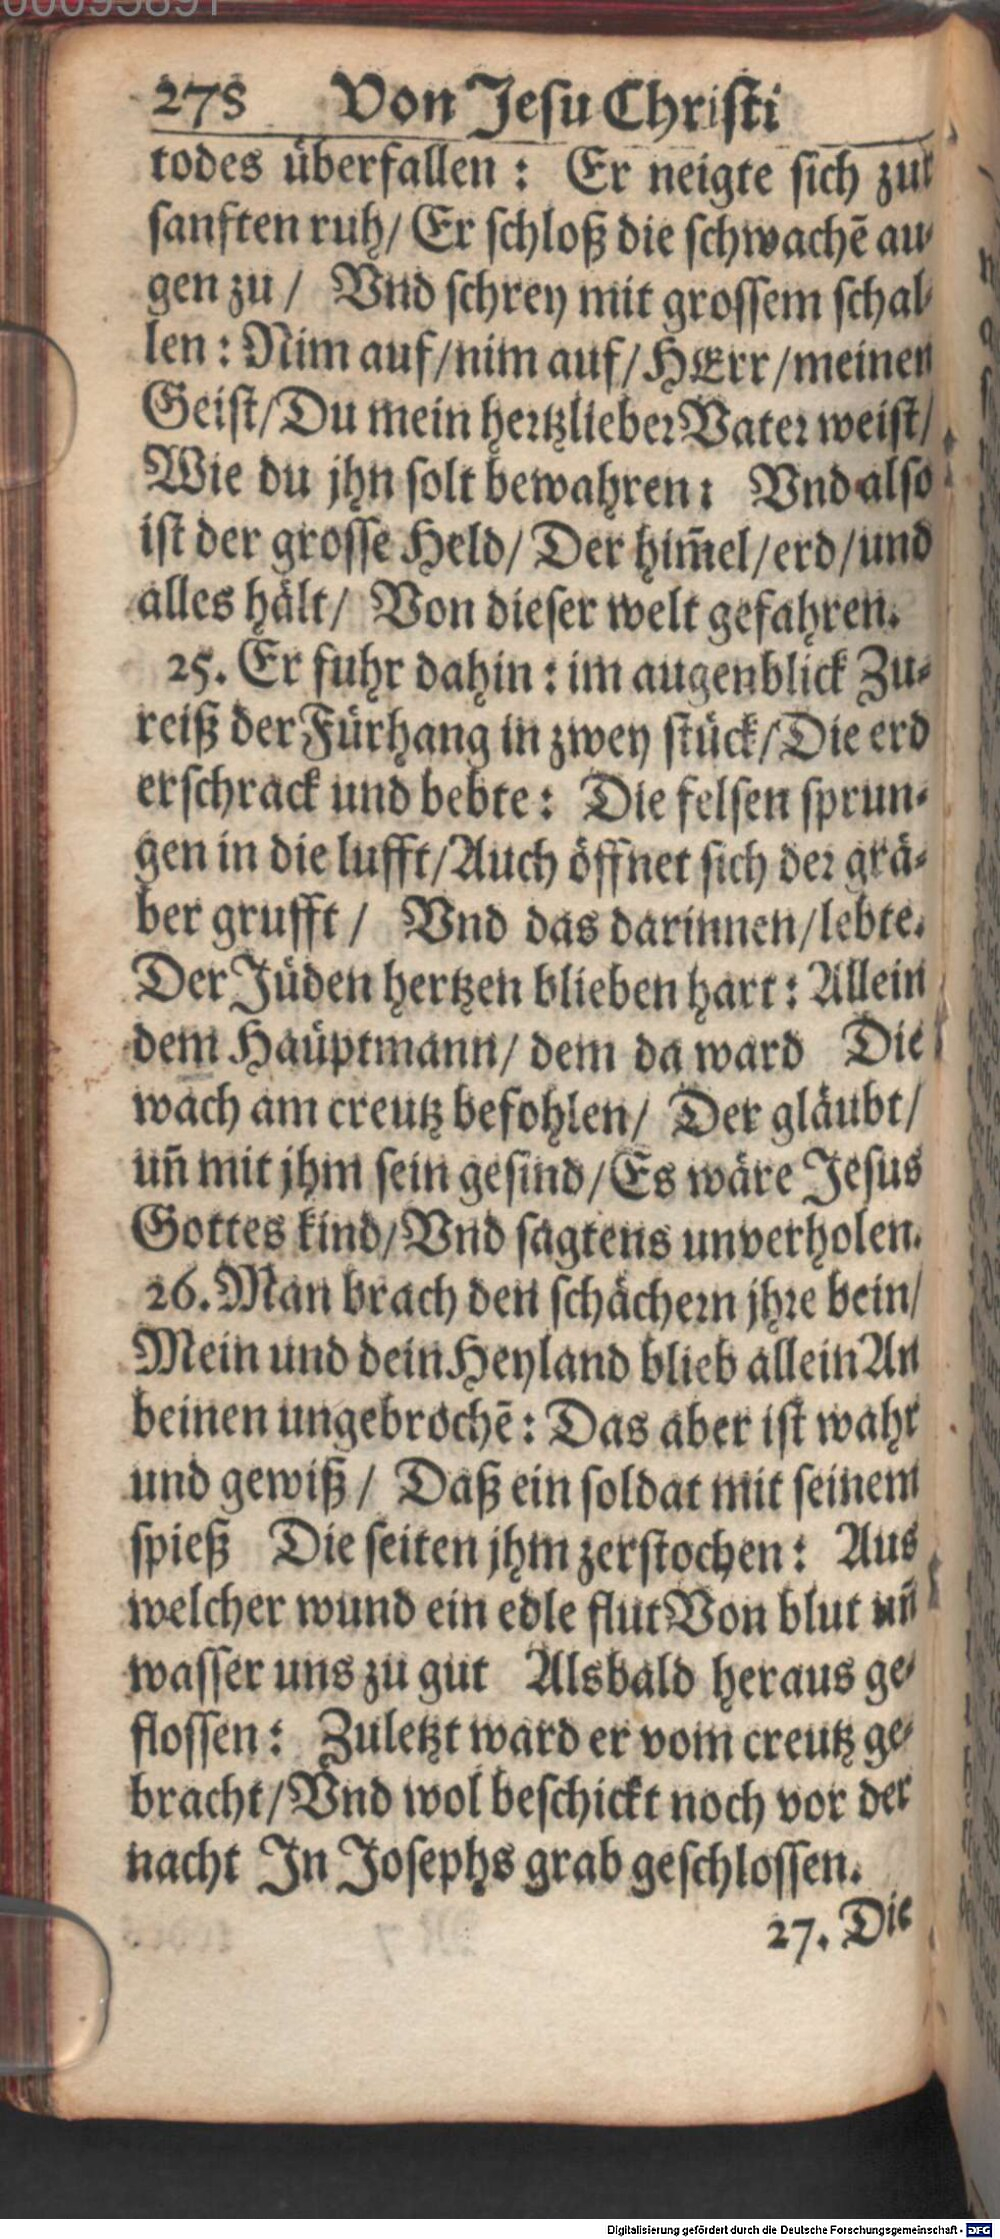 00095891
278 Von Jesu Christi
todes überfallen: Er neigte sich zur
sanften ruh/ Er schloß die schwachẽ au-
gen zu / Vnd schrey mit grossem schal-
len: Nim auf/nim auf/ HErr/meinen
Geist/Du mein hertzlieber Vater weist/
Wie du jhn solt bewahren: Vnd also
ist der grosse Held/ Der him̃el/erd/und
alles hält/ Von dieser welt gefahren.
25. Er fuhr dahin: im augenblick Zu-
reiß der Fürhang in zwey stück/Die erd
erschrack und bebte: Die felsen sprun-
gen in die lufft/Auch öffnet sich der grä-
ber grufft/ Vnd das darinnen/lebte.
Der Jüden hertzen blieben hart: Allein
dem Haüptmann/ dem da ward Die
wach am creutz befohlen/ Der gläubt/
uñ mit jhm sein gesind/Es wäre Jesus
Gottes kind/Vnd sagtens unverholen.
26. Man brach den schächern jhre bein/
Mein und dein Heyland blieb allein An
beinen ungebrochẽ: Das aber ist wahr
und gewiß/ Daß ein soldat mit seinem
spieß Die seiten jhm zerstochen: Aus
welcher wund ein edle flut Von blut uñ
wasser uns zu gut Alsbald heraus ge-
flossen: Zuletzt ward er vom creutz ge-
bracht/Vnd wol beschickt noch vor der
nacht In Josephs grab geschlossen.
27. Die
Digitalisierung gefördert durch die Deutsche Forschungsgemeinschaft - DFG